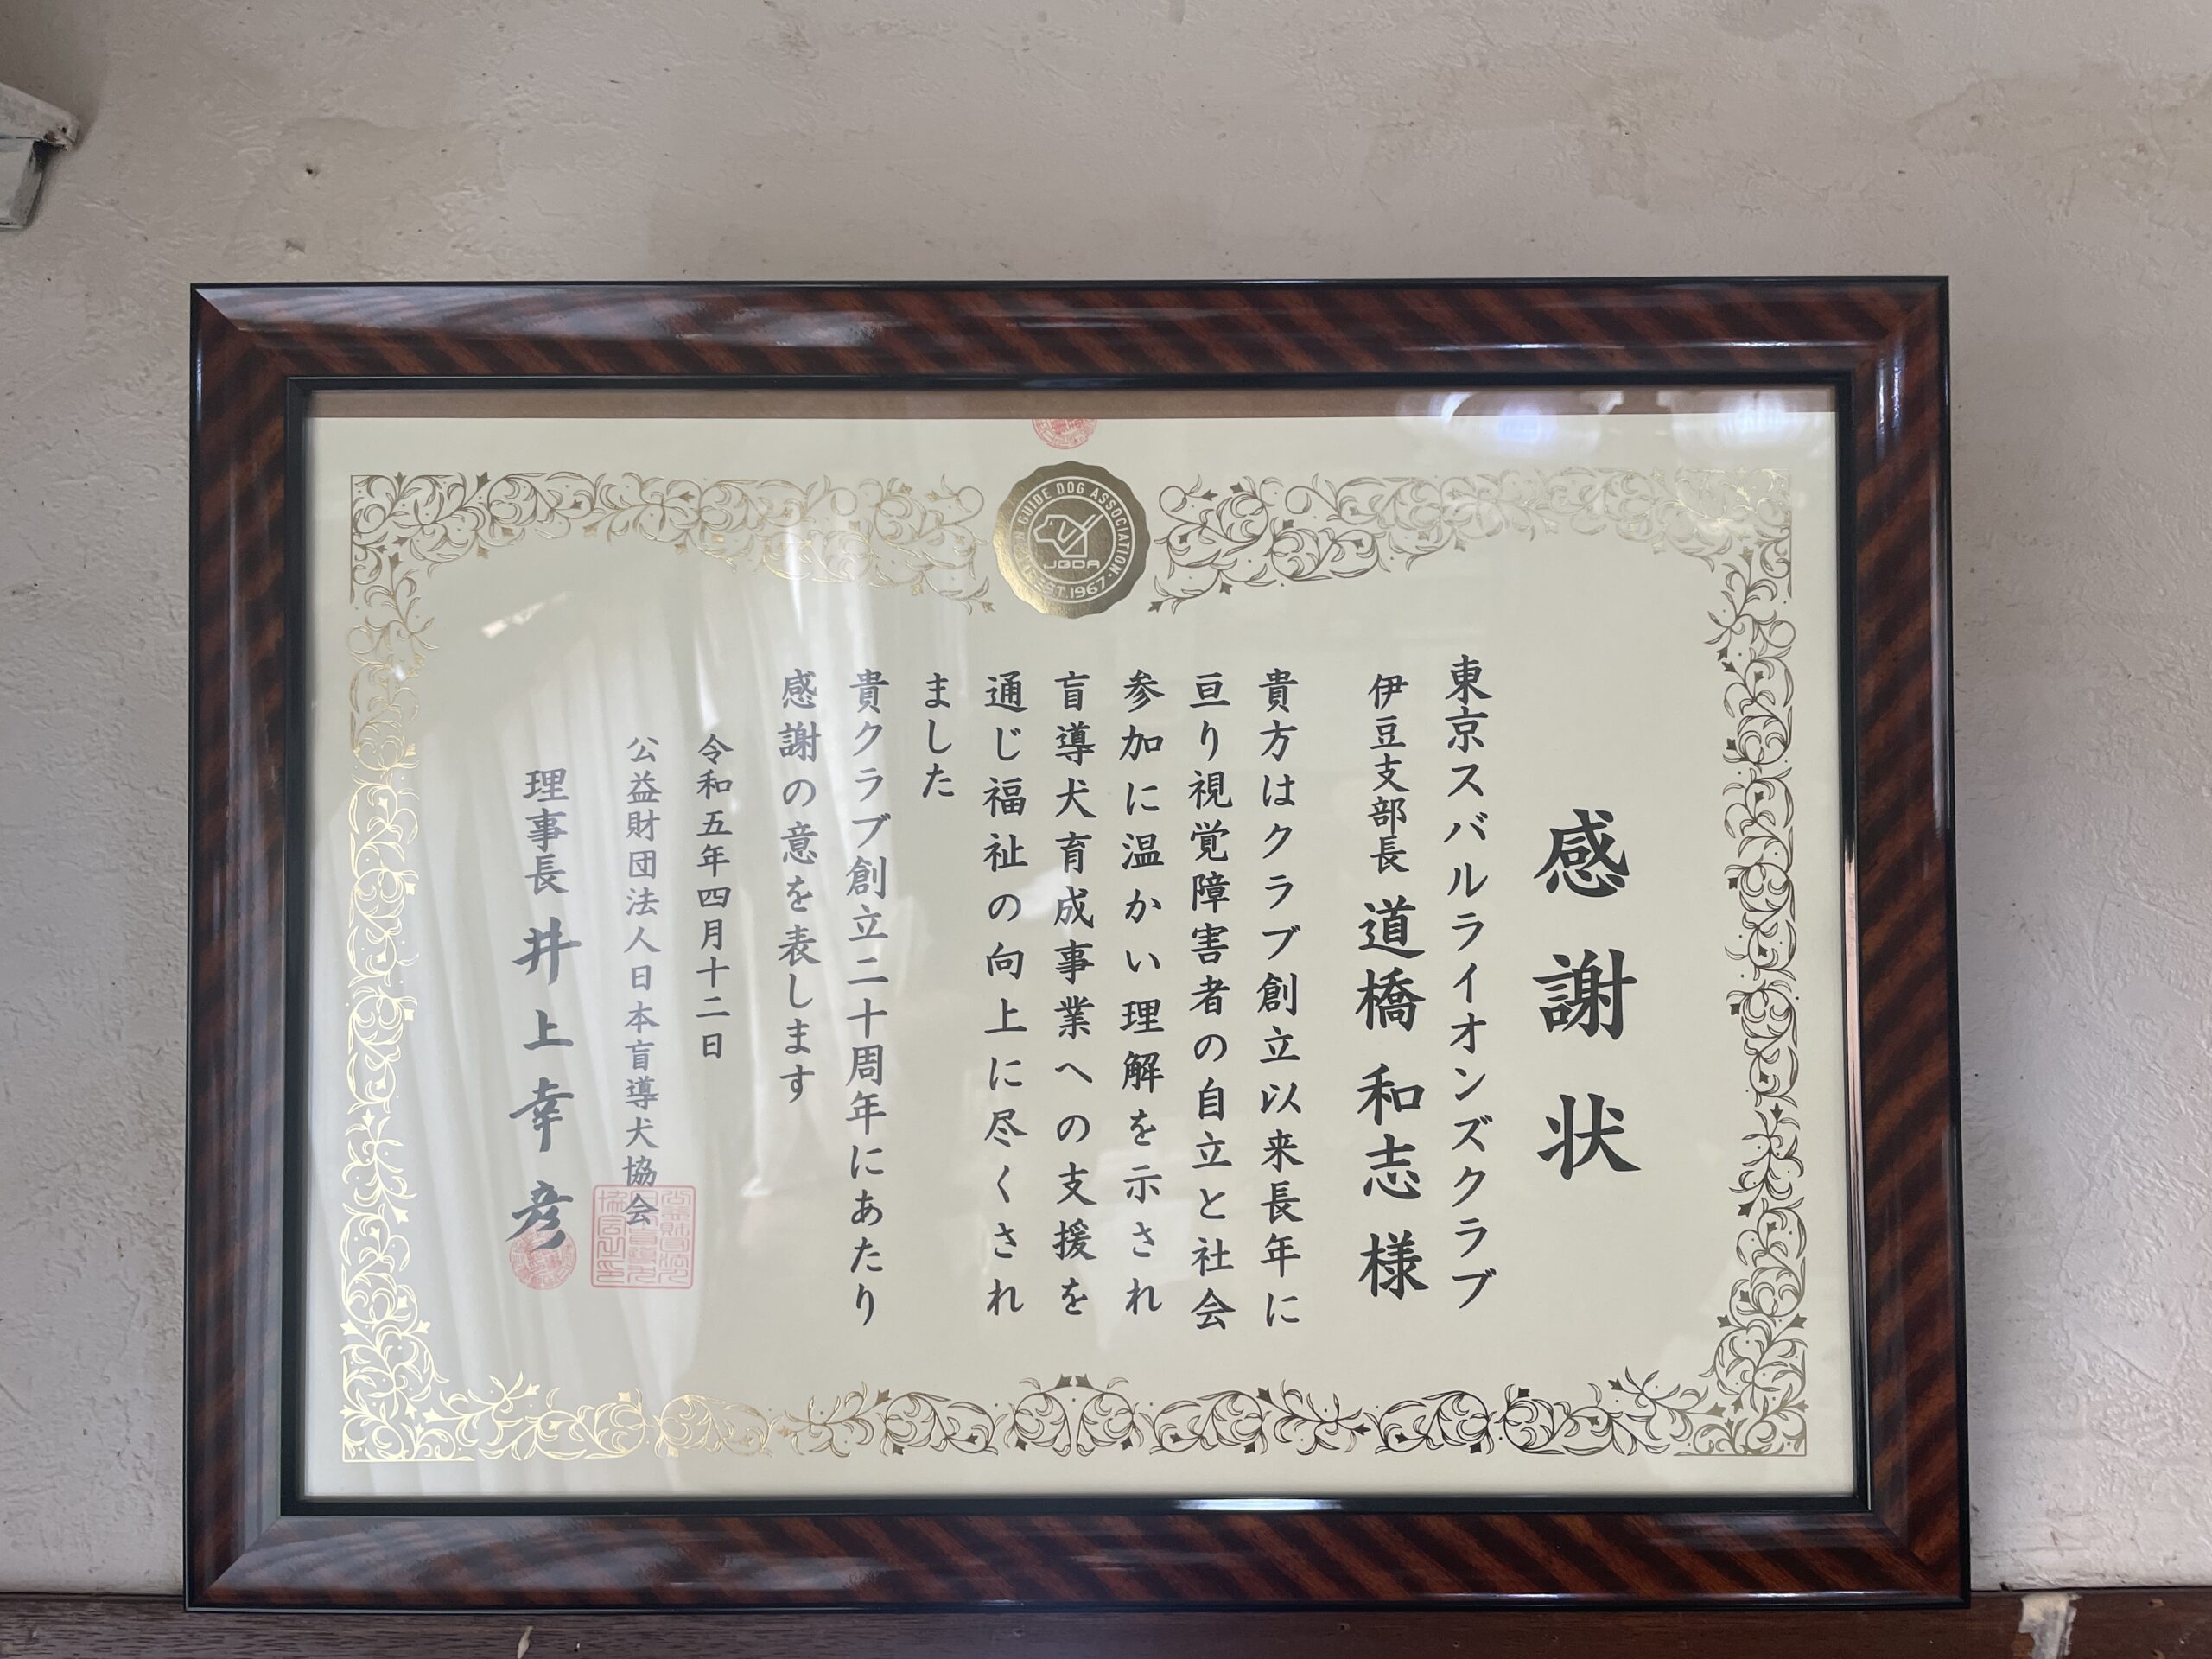 感謝状
東京スバルライオンズクラブ
伊豆支部長 道橋 和志 様
貴方はクラブ創立以来長年に
亘り視覚障害者の自立と社会
参加に温かい理解を示され
盲導犬育成事業への支援を
通じ福祉の向上に尽くされ
ました
貴クラブ創立二十周年にあたり
感謝の意を表します
令和五年四月十二日
公益財団法人日本盲導犬協会
理事長 井上幸彦
GUIDE DOG ASSOCIATION
JGDA
EST.1967